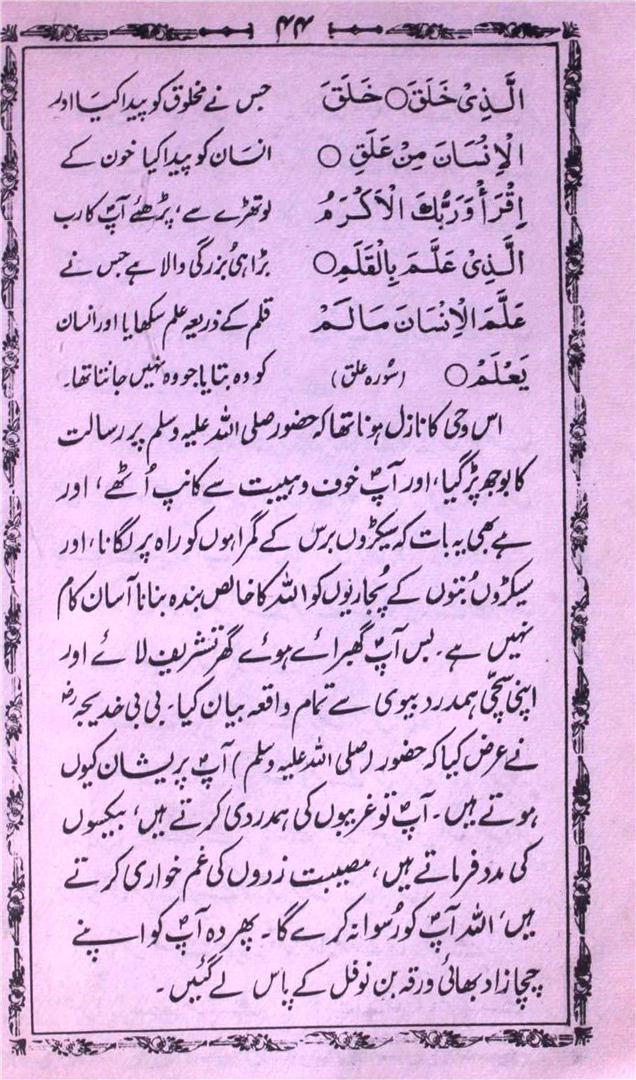 ۴۴
الَّذِیْ خَلَقَ○ خَلَقَ جس نے مخلوق کو پیدا کیَا اور
الْاِنْسَانَ مِنْ عَلَقٍ ○ انسَان کو پیدا کیا خون کے
اِقْرَأْ وَرَبُّكَ الْاَكْرَمُ لوتھڑے سے، پڑھئے آپؐ کا رب
الَّذِیْ عَلَّمَ بِالْقَلَمِ○ بڑا ہی بُزرگی والا ہے جس نے
عَلَّمَ الْاِنْسَانَ مَا لَمْ قلم کے ذریعہ علم سکھایا اور انسان
یَعْلَمْ ○ (سُورہ علق) کو وہ بتایا جو وہ نہیں جانتا تھا۔
اس وحی کا نازل ہونا تھا کہ حضور صلی اللہ علیہ وسلم پر رسالت
کا بوجھ پڑ گیا، اور آپؐ خوف و ہیبت سے کانپ اُٹھے، اور
ہے بھی یہ بات کہ سیکڑوں برس کے گمراہوں کو راہ پر لگانا، اور
سیکڑوں بُتوں کے پُجاریوں کو اللہ کا خالص بندہ بنانا آسان کام
نہیں ہے۔ بس آپؐ گھبرائے ہوئے گھر تشریف لائے اور
اپنی سچّی ہمدرد بیوی سے تمام واقعہ بیان کیا۔ بی بی خدیجہؓ
نے عرض کیا کہ حضور (صلی اللہ علیہ وسلم) آپؐ پریشان کیوں
ہوتے ہیں۔ آپؐ تو غریبوں کی ہمدردی کرتے ہیں، بیکسوں
کی مدد فرماتے ہیں، مصیبت زدوں کی غم خواری کرتے
ہیں، اللہ آپؐ کو رُسوا نہ کرے گا۔ پھر وہ آپؐ کو اپنے
چچا زاد بھائی ورقہ بن نوفل کے پاس لے گئیں۔